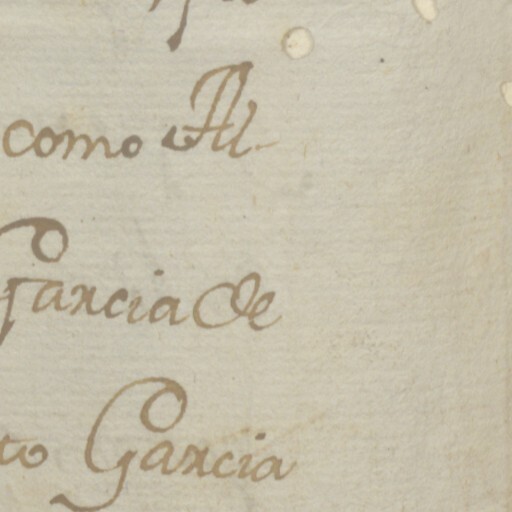 como Al-
Garcia de
to Garcia